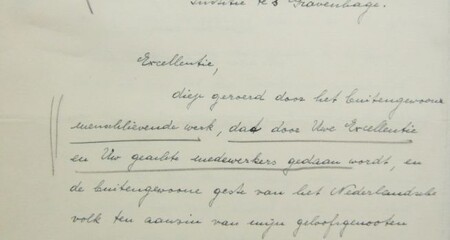 Justitie te 's Gravenhage.
Excellentie,
diep geroerd door het buitengewoone
menschlievende werk, dat door Uwe Excellentie
en Uw geachte medewerkers gedaan wordt, en
de buitengewoone geste van het Nederlandsche
volk ten aanzien van mijn geloofsgenooten